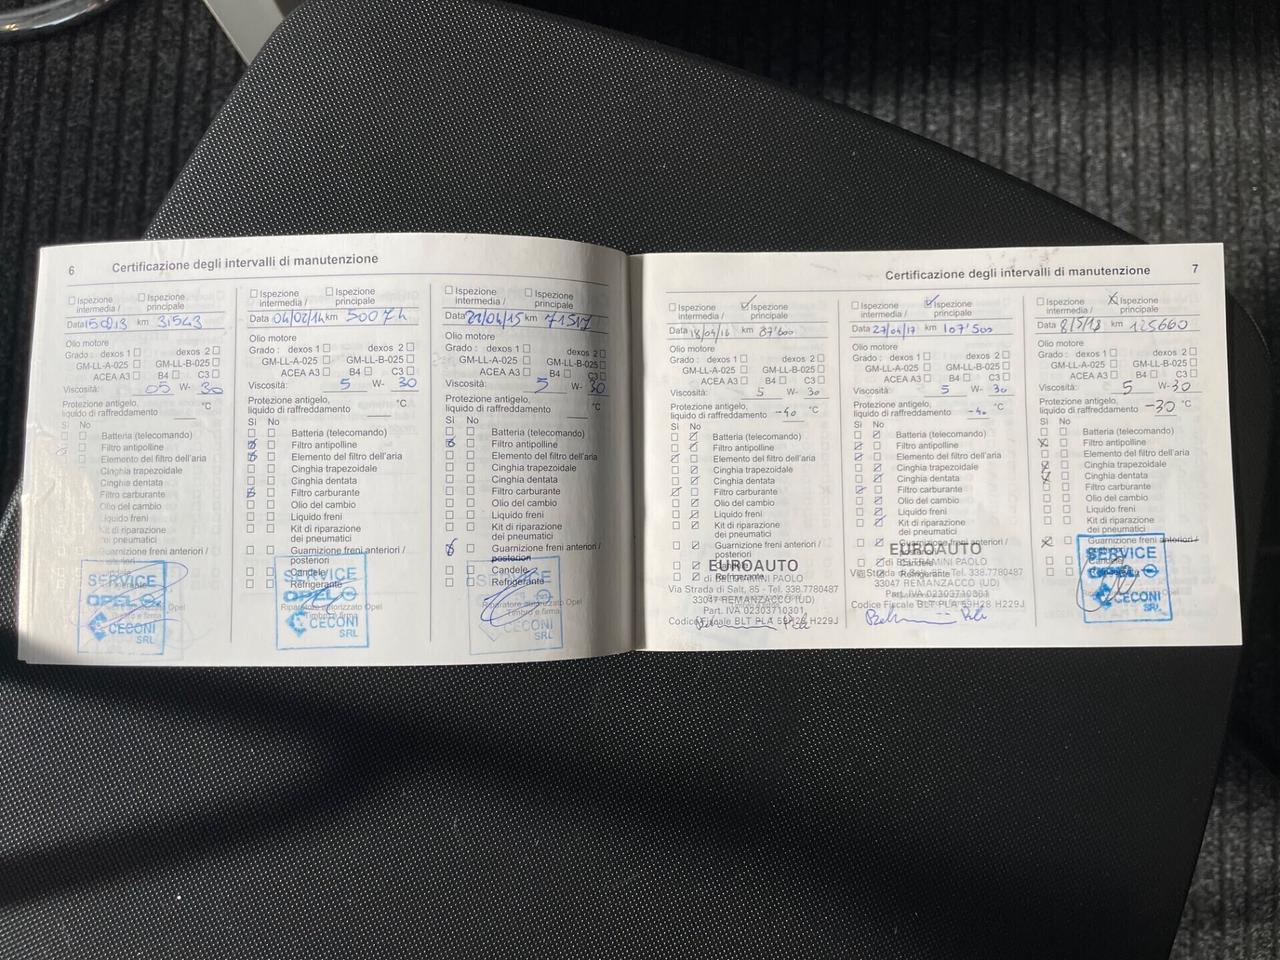 6 Certificazione degli intervalli di manutenzione
Ispezione intermedia / Ispezione principale
Data km 31543
Olio motore
Grado : dexos 1 dexos 2
GM-LL-A-025 GM-LL-B-025
ACEA A3 B4 C3
Viscosità: 05 W- 30
Protezione antigelo, °C
liquido di raffreddamento
Sì No
Batteria (telecomando)
Filtro antipolline
Elemento del filtro dell'aria
Cinghia trapezoidale
Cinghia dentata
Filtro carburante
Olio del cambio
Liquido freni
Kit di riparazione
dei pneumatici
Guarnizione freni anteriori /
SERVICE
OPEL
CECONI
SRL
Ispezione intermedia / Ispezione principale
Data 04/02/14 km
Olio motore
Grado : dexos 1 dexos 2
GM-LL-A-025 GM-LL-B-025
ACEA A3 B4 C3
Viscosità: 5 W- 30
Protezione antigelo, °C
liquido di raffreddamento
Sì No
Batteria (telecomando)
Filtro antipolline
Elemento del filtro dell'aria
Cinghia trapezoidale
Cinghia dentata
Filtro carburante
Olio del cambio
Liquido freni
Kit di riparazione
dei pneumatici
Guarnizione freni anteriori /
posteriori
Candele
Refrigerante
Riparatore autorizzato Opel
Timbro e firma
SERVICE
OPEL
CECONI
SRL
Ispezione intermedia / Ispezione principale
Data 22/04/15 km 71517
Olio motore
Grado : dexos 1 dexos 2
GM-LL-A-025 GM-LL-B-025
ACEA A3 B4 C3
Viscosità: 5 W- 30
Protezione antigelo, °C
liquido di raffreddamento
Sì No
Batteria (telecomando)
Filtro antipolline
Elemento del filtro dell'aria
Cinghia trapezoidale
Cinghia dentata
Filtro carburante
Olio del cambio
Liquido freni
Kit di riparazione
dei pneumatici
Guarnizione freni anteriori /
posteriori
Candele
Refrigerante
Riparatore autorizzato Opel
Timbro e firma
SERVICE
OPEL
CECONI
SRL
Certificazione degli intervalli di manutenzione 7
Ispezione intermedia / Ispezione principale
Data 18/04/16 km 87'600
Olio motore
Grado : dexos 1 dexos 2
GM-LL-A-025 GM-LL-B-025
ACEA A3 B4 C3
Viscosità: 5 W- 30
Protezione antigelo,
liquido di raffreddamento -40 °C
Sì No
Batteria (telecomando)
Filtro antipolline
Elemento del filtro dell'aria
Cinghia trapezoidale
Cinghia dentata
Filtro carburante
Olio del cambio
Liquido freni
Kit di riparazione
dei pneumatici
Guarnizione freni anteriori /
posteriori
Candele
Refrigerante
EUROAUTO
di BELTRAMINI PAOLO
Via Strada di Salt, 85 - Tel. 338.7780487
33047 REMANZACCO (UD)
Part. IVA 02303710301
Codice Fiscale BLT PLA 59H28 H229J
Ispezione intermedia / Ispezione principale
Data 27/04/17 km 107'500
Olio motore
Grado : dexos 1 dexos 2
GM-LL-A-025 GM-LL-B-025
ACEA A3 B4 C3
Viscosità: 5 W- 30
Protezione antigelo,
liquido di raffreddamento -40 °C
Sì No
Batteria (telecomando)
Filtro antipolline
Elemento del filtro dell'aria
Cinghia trapezoidale
Cinghia dentata
Filtro carburante
Olio del cambio
Liquido freni
Kit di riparazione
dei pneumatici
Guarnizione freni anteriori /
Candele
Refrigerante
EUROAUTO
di BELTRAMINI PAOLO
Via Strada di Salt, 85 - Tel. 338.7780487
33047 REMANZACCO (UD)
Part. IVA 02303710301
Codice Fiscale BLT PLA 59H28 H229J
Ispezione intermedia / Ispezione principale
Data 8/5/18 km 125660
Olio motore
Grado : dexos 1 dexos 2
GM-LL-A-025 GM-LL-B-025
ACEA A3 B4 C3
Viscosità: 5 W-30
Protezione antigelo,
liquido di raffreddamento -30 °C
Sì No
Batteria (telecomando)
Filtro antipolline
Elemento del filtro dell'aria
Cinghia trapezoidale
Cinghia dentata
Filtro carburante
Olio del cambio
Liquido freni
Kit di riparazione
dei pneumatici
Guarnizione freni anteriori /
SERVICE
OPEL
CECONI
SRL